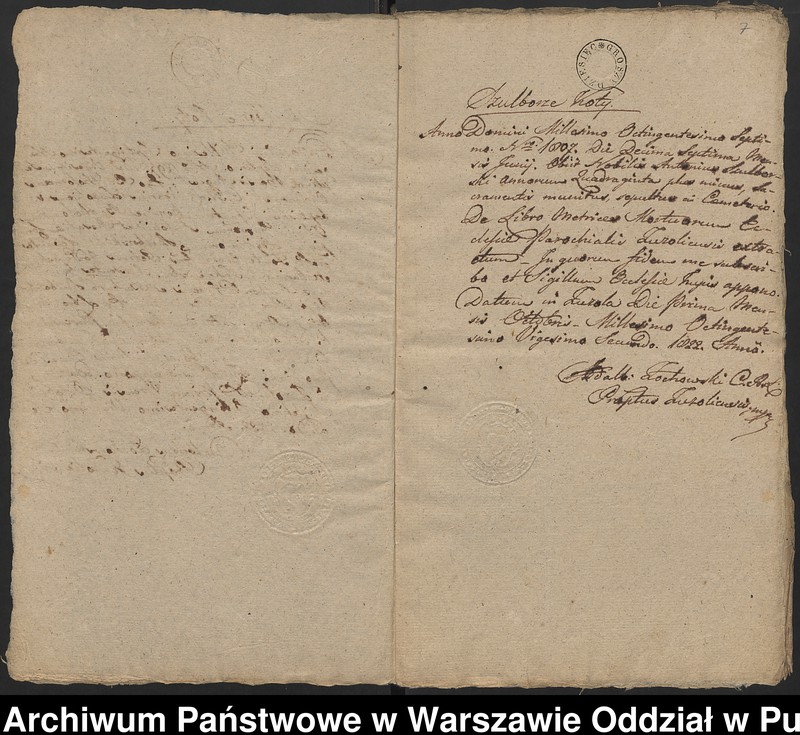 7
DZIESIĘC GROSZY
Szulborze Koty
Anno Domini Millesimo Octingentesimo Septi-
mo. Nro 1807. Die Decima Septima Men-
sis Junij. Obiit Nobilis Antonius Szulbor-
ski annorum Quadraginta plus minus, Sa-
cramentis munitus, sepultus in Cemeterio.
De Libro Metrices Mortuorum Ec-
clesiæ Parochialis Zuzoliensis extra-
ctum – In quorum fidem me subscri-
bo et Sigillum Ecclesiæ hujus appono.
Datum in Zuzola Die Prima Men-
sis Octobris – Millesimo Octingente-
simo Vigesimo Secundo. 1822. Anno.
Adalb: Zochowski
Præptus Zuzoliensis mpp
Archiwum Państwowe w Warszawie Oddział w Pu